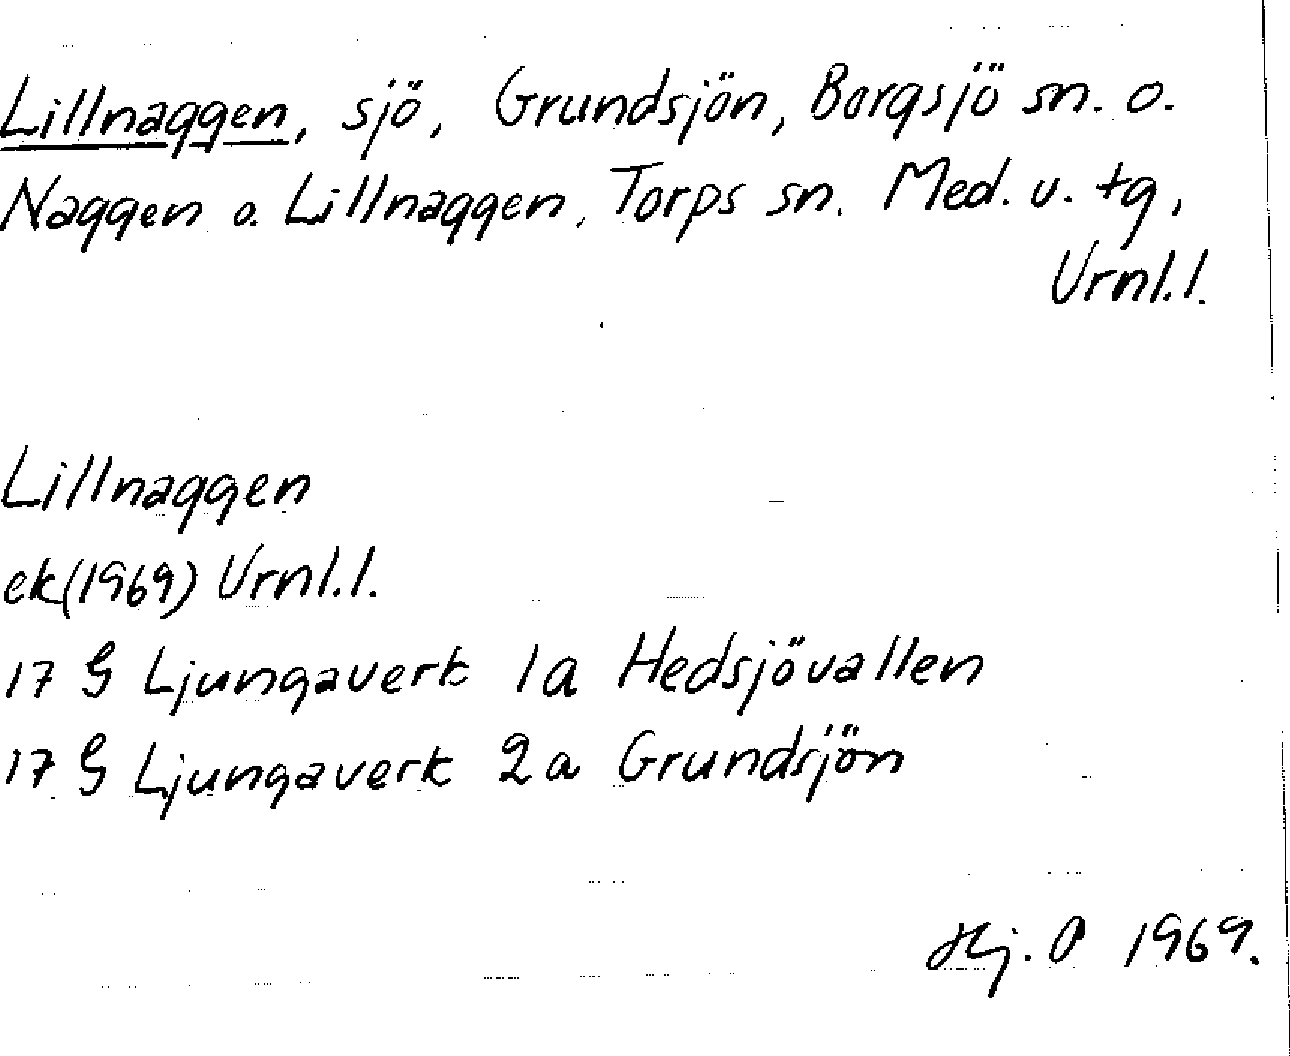 Lillnaggen, sjö, Grundsjön, Borgsjö sn. o.
Naggen o. Lillnaggen, Torps sn. Med. v. tg,
Vrnl.l.
Lillnaggen
ek(1969) Vrnl.l.
17 G Ljungaverk 1a Hedsjövallen
17 G Ljungaverk 2a Grundsjön
Hj. P 1969.